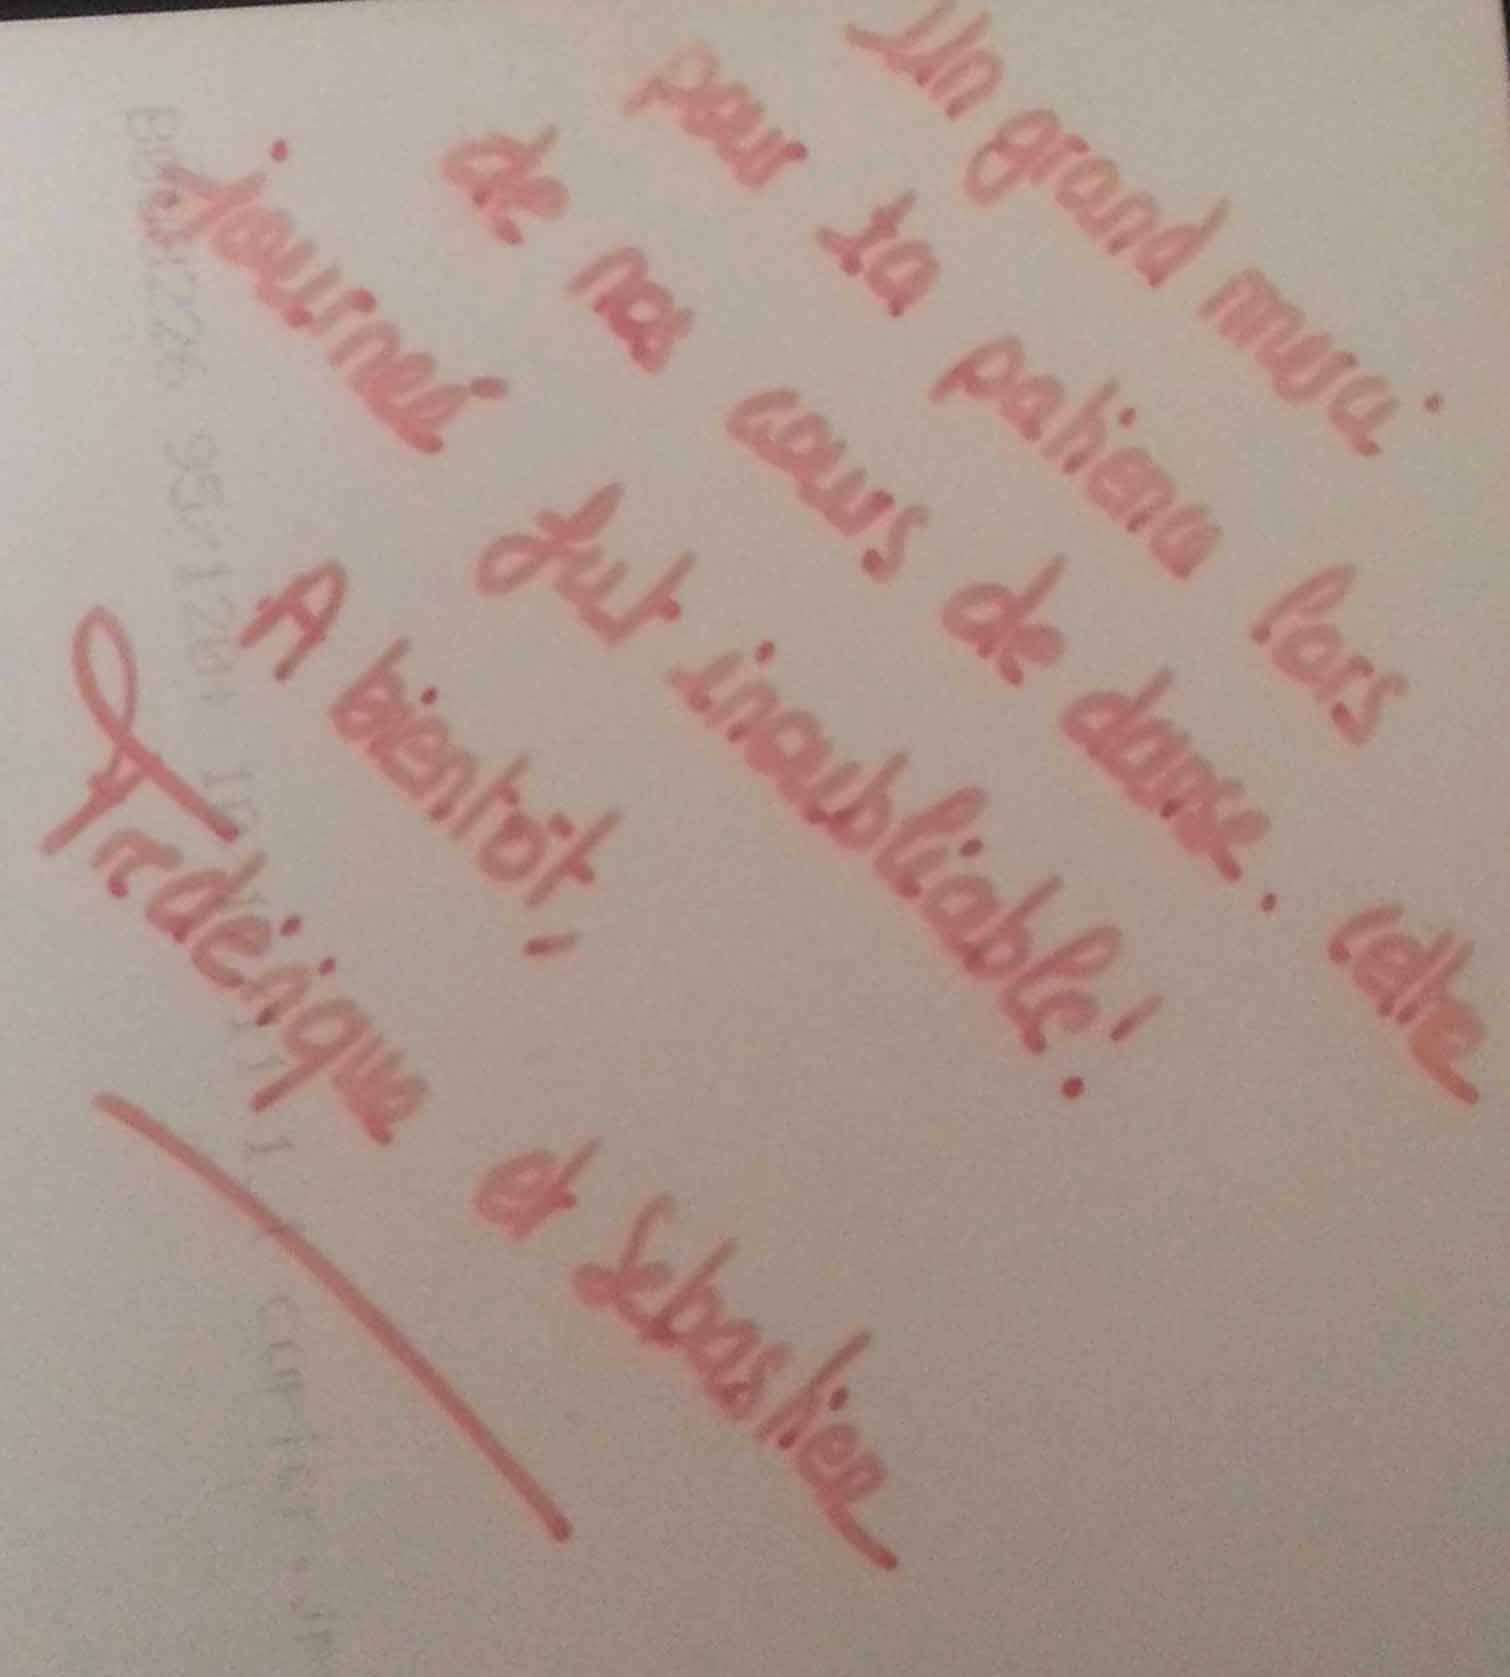 Un grand merci
pour ta patience lors
de nos cours de danse. Cette
journée fut inoubliable!
A bientôt,
Frédérique et Sébastien